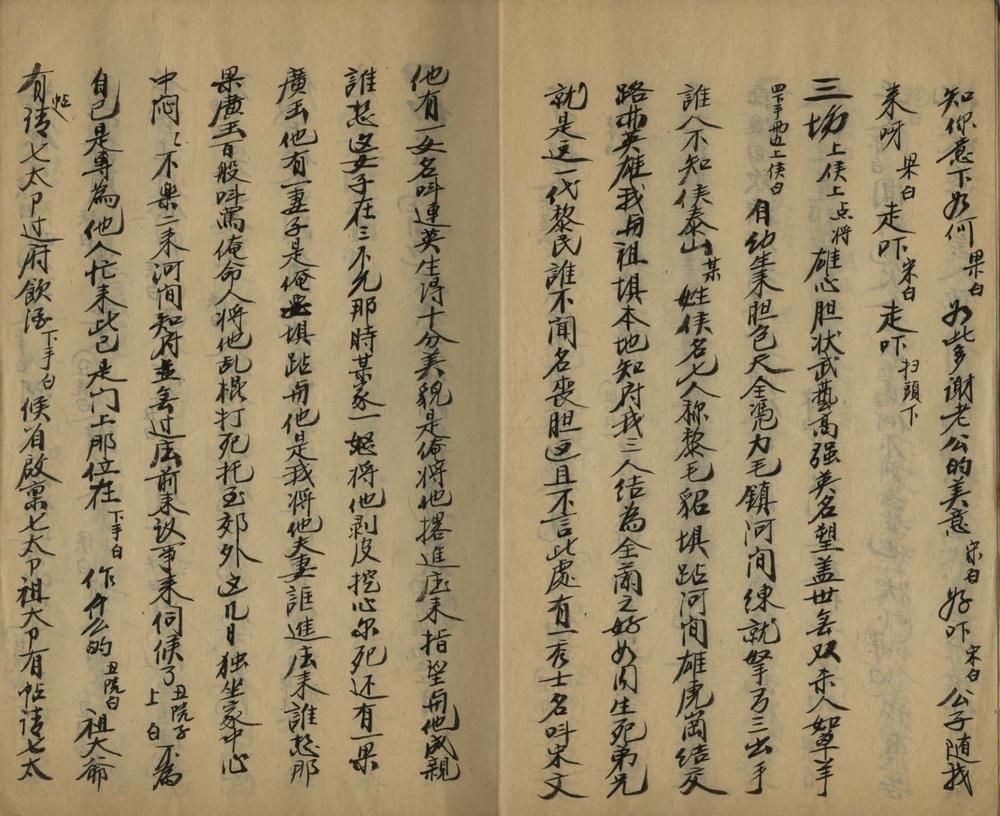 知你意下如何 果白 如此多谢老公的美意 宋白 好吓 宋白 公子随我
来呀 果白 走吓 宋白 走吓 扫頭下
三场 上侯上 点将 雄心胆状武藝高强英名塑盖世無双杀人如宰羊
四下手两边上侯白 自幼生来胆包天全憑力毛鎮河间練就拏弓三出手
誰人不知侯泰山 某 姓侯名七人称黎毛貂填跕河间雄虎崗结交
路菻英雄我甪祖填本地知府我三人结為全蘭之好如同生死弟兄
就是这一代黎民誰不聞名喪胆这且不言此處有一秀士名叫宋文
他有一女名叫連英生得十分美貌是俺将他撂進庄来指望甪他成親
誰想这女子在三不允那時某家一怒将他剥皮挖心尔死还有一果
廣玉他有一妻子是俺填跕甪他是我将他夫妻誆進庄来誰想那
果廣玉百般叫罵俺命人将他乱棍打死托至郊外这几日独坐家中心
中闷〻不樂二来河间知府並無过庄前来议事来伺候了 丑院子上白 不為
自己是尊為他人忙来此已是门上那位在 下手白 作什么的 丑院白 祖大爺
有帖请七太卩过府飲酒 下手白 候省啟禀七太卩祖大卩有帖请七太